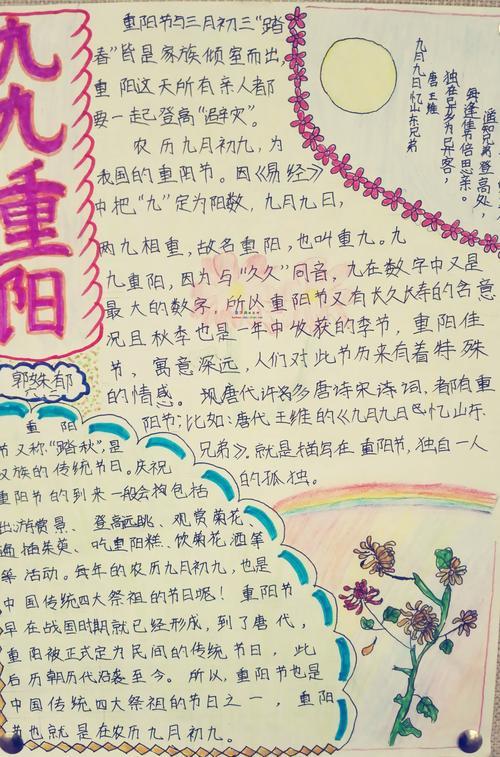 九九重阳
重阳节与三月初三“踏
春”皆是家族倾室而出,
重阳这天所有亲人都
要一起登高“避灾”。
农历九月初九，为
我国的重阳节。因《易经》
中把“九”定为阳数，九月九日，
两九相重，故名重阳，也叫重九。九
九重阳，因为与“久久”同音，九在数字中又是
最大的数字，所以重阳节又有长久长寿的含意
况且秋季也是一年中收获的季节，重阳佳
节，寓意深远，人们对此节历来有着特殊
的情感。现唐代许多唐诗宋诗词，都有重
阳节：比如：唐代王维的《九月九日忆山东
兄弟》。就是描写在重阳节，独自一人
的孤独。
九月九日忆山东兄弟
唐王维
独在异乡为异客，
每逢佳节倍思亲。
遥知兄弟登高处，
重阳
节又称“踏秋”，是
汉族的传统节日。庆祝
重阳节的到来一般会包括
出游赏景、登高远眺、观赏菊花、
遍插茱萸、吃重阳糕、饮菊花酒等
等活动。每年的农历九月初九，也是
中国传统四大祭祖的节日呢！重阳节
早在战国时期就已经形成，到了唐代，
重阳被正式定为民间的传统节日，此
后历朝历代沿袭至今。所以，重阳节也是
中国传统四大祭祖的节日之一，重阳
节也就是在农历九月初九。